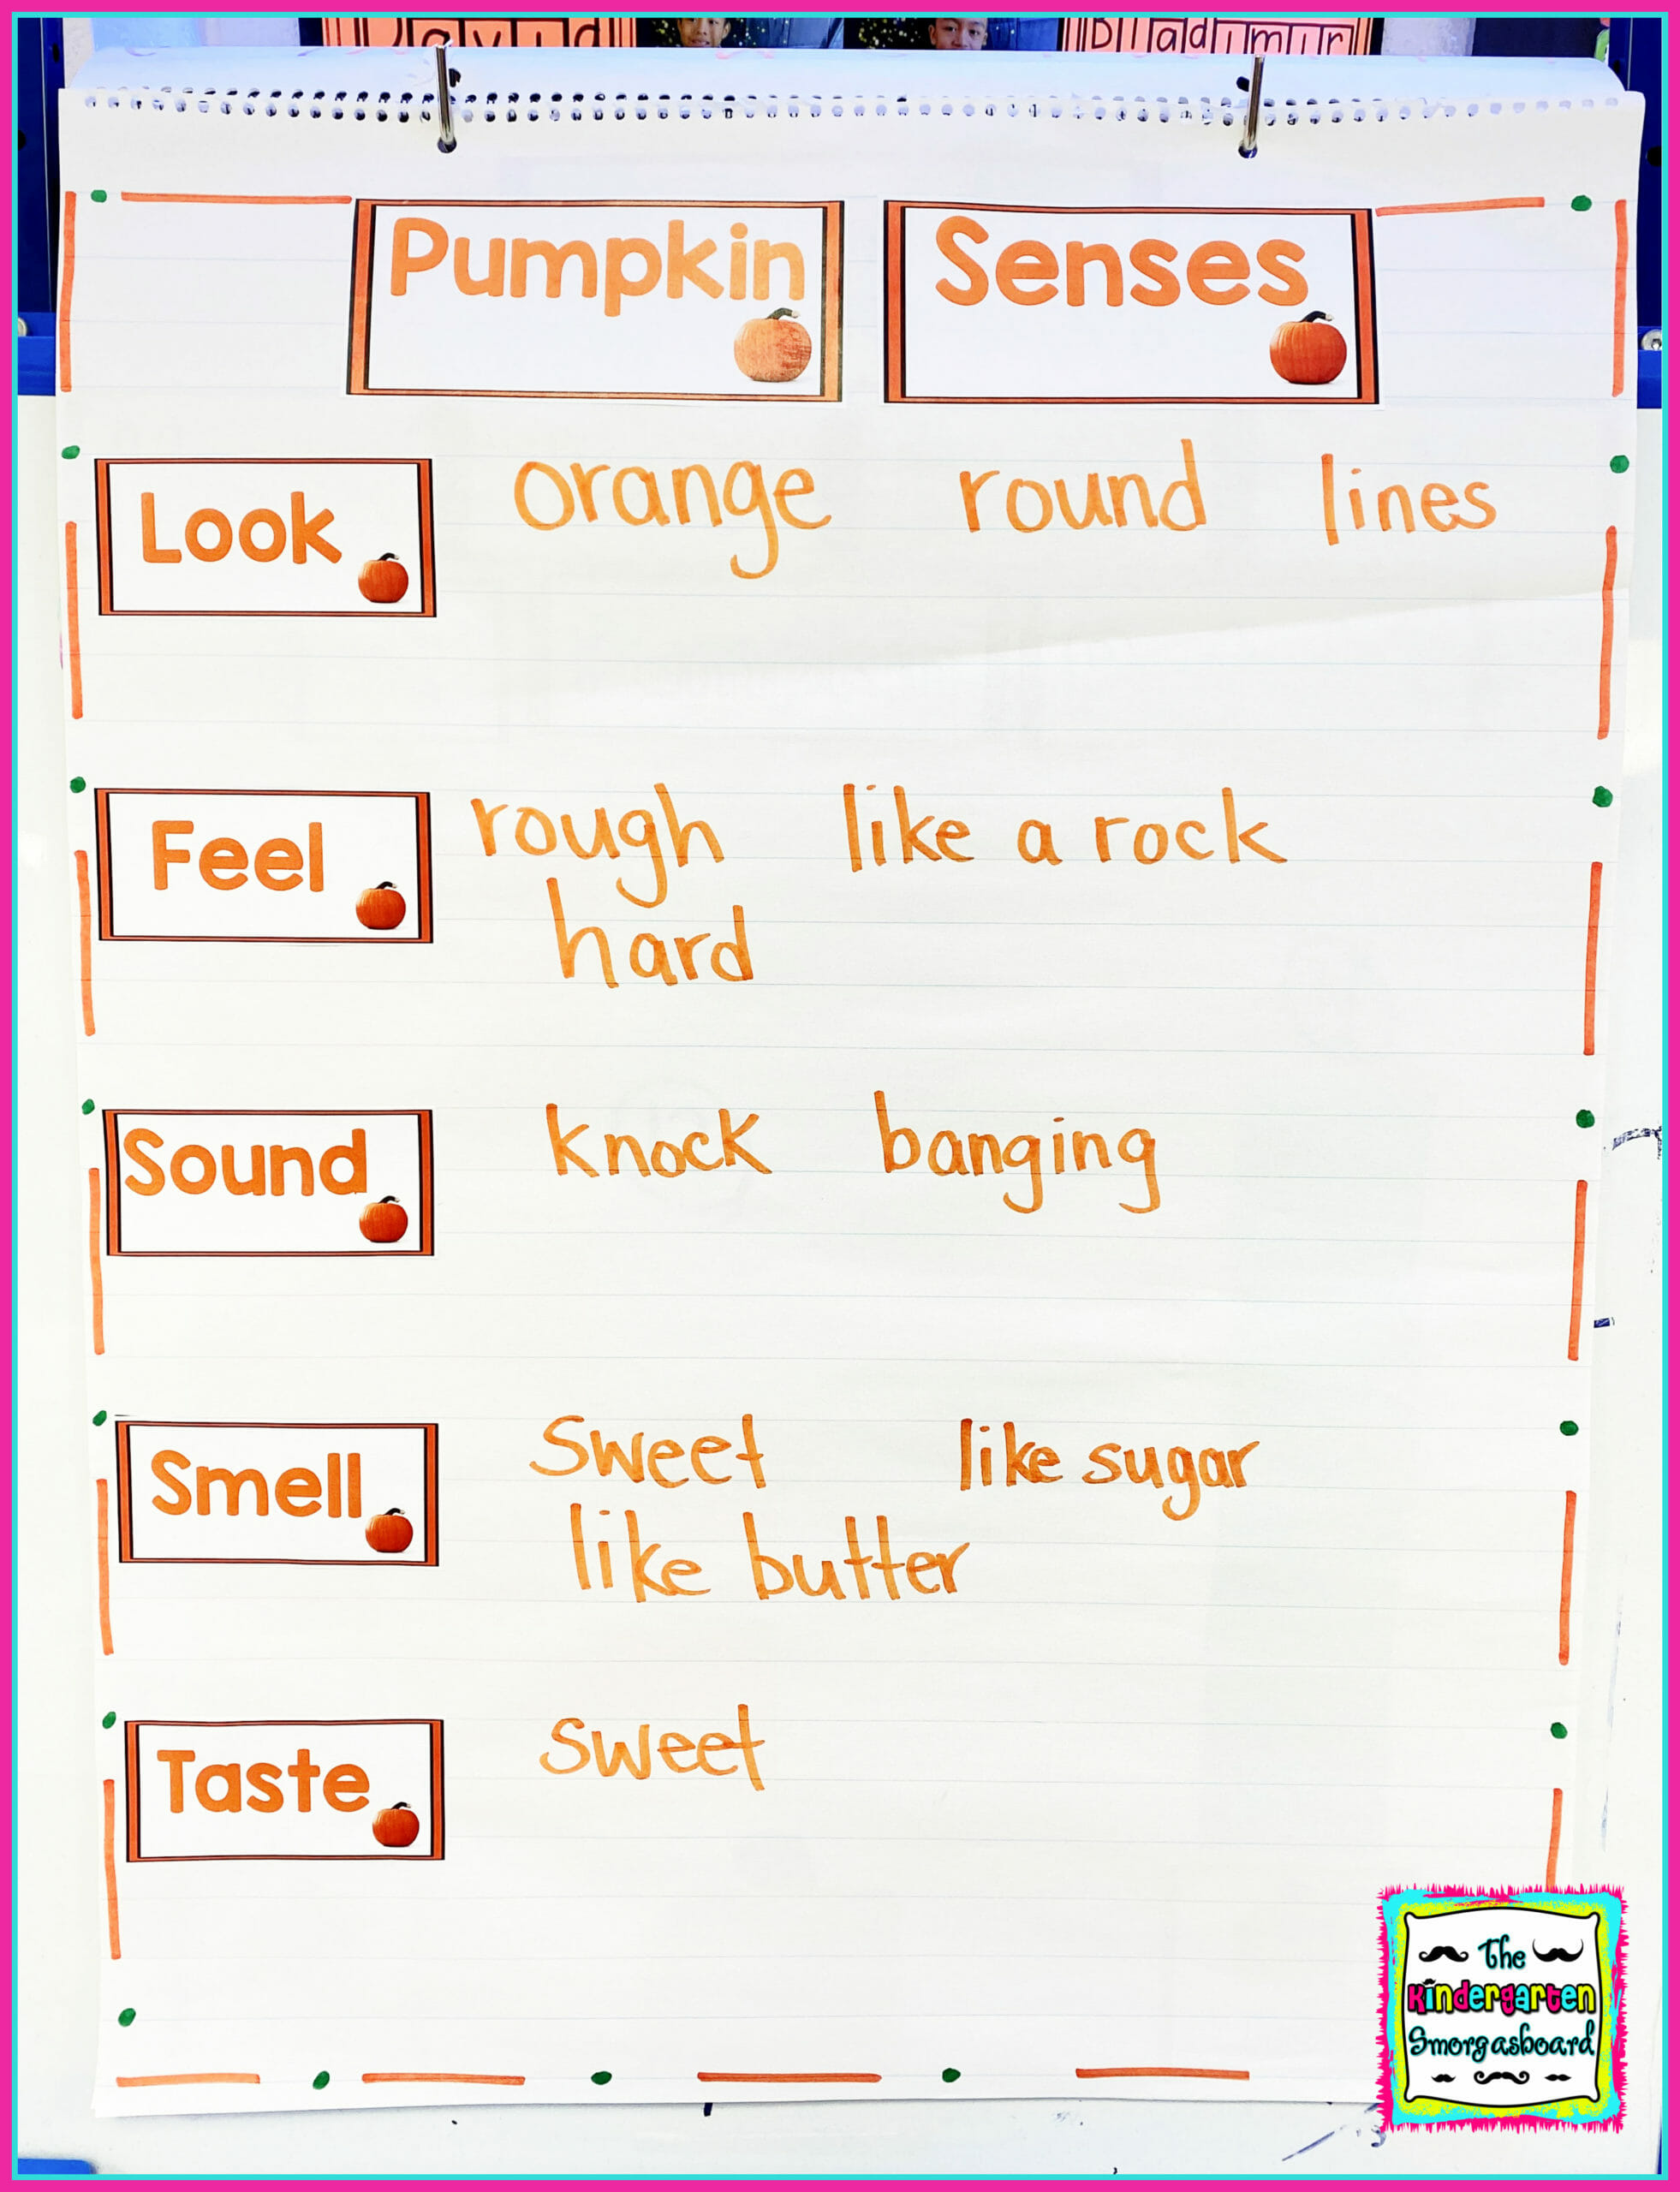 David Bladimir
Pumpkin Senses
Look orange round lines
Feel rough like a rock
hard
Sound knock banging
Smell sweet like sugar
like butter
Taste sweet
The
Kindergarten
Smorgasboard